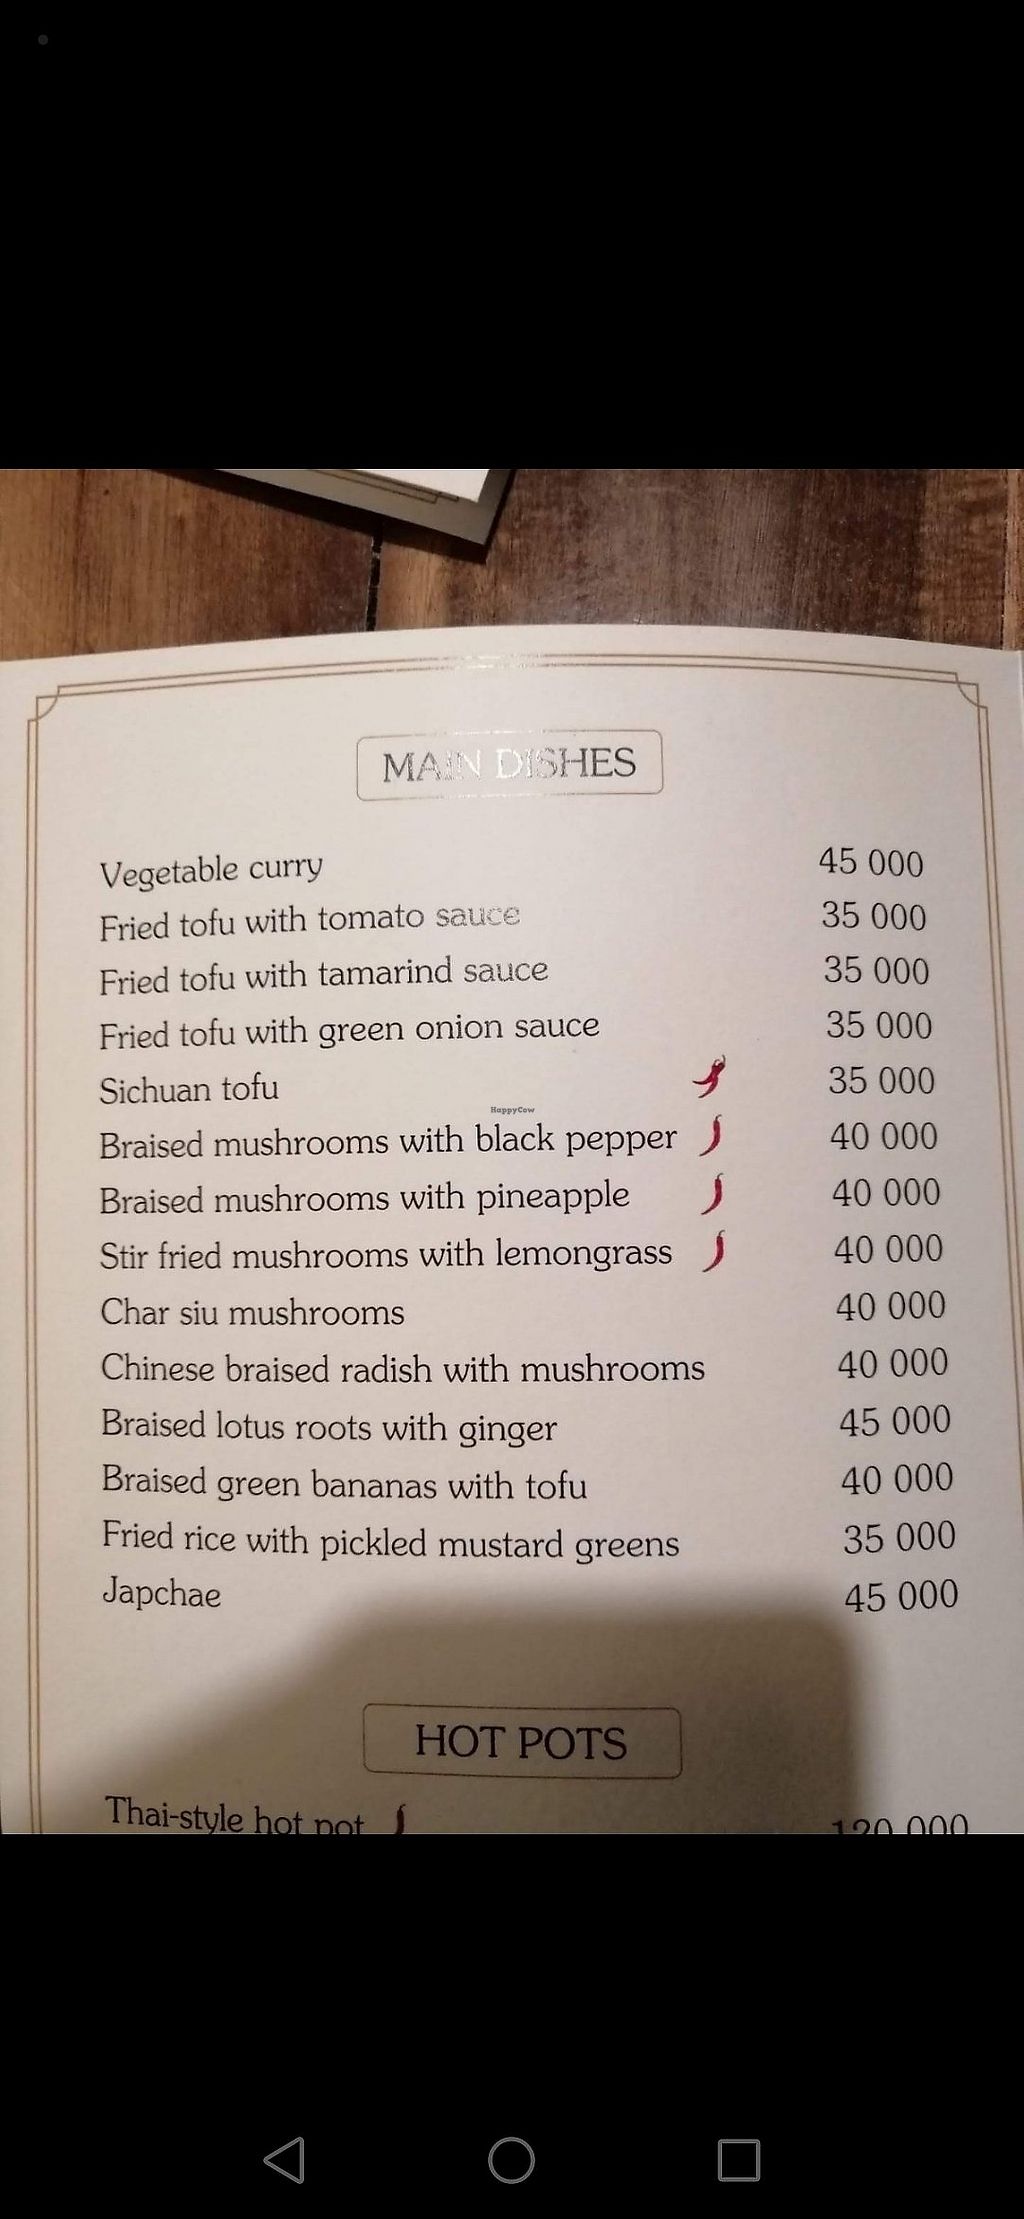 MAIN DISHES
Vegetable curry 45 000
Fried tofu with tomato sauce 35 000
Fried tofu with tamarind sauce 35 000
Fried tofu with green onion sauce 35 000
Sichuan tofu 35 000
HappyCow
Braised mushrooms with black pepper 40 000
Braised mushrooms with pineapple 40 000
Stir fried mushrooms with lemongrass 40 000
Char siu mushrooms 40 000
Chinese braised radish with mushrooms 40 000
Braised lotus roots with ginger 45 000
Braised green bananas with tofu 40 000
Fried rice with pickled mustard greens 35 000
Japchae 45 000
HOT POTS
Thai-style hot pot 120 000